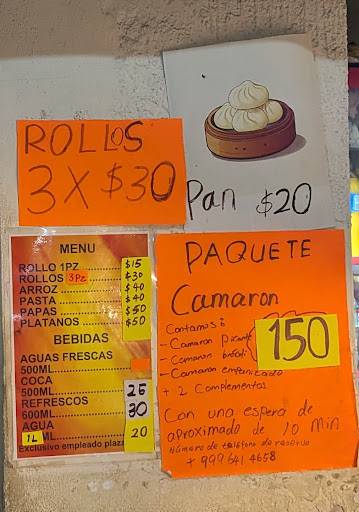 ROLLOS
3 X $30
Pan $20
MENU
ROLLO 1PZ $15
ROLLOS 3Pz $30
ARROZ $40
PASTA $40
PAPAS $50
PLATANOS $50
BEBIDAS
AGUAS FRESCAS
500ML
COCA
500ML 25
REFRESCOS
600ML 30
AGUA
1L ML 20
Exclusivo empleado plaza
PAQUETE
Camaron
Contamos:
- Camaron Picante
- Camaron brócoli
- Camaron empanizado
+ 2 Complementos
150
Con una espera de
aproximado de 10 Min
Número de teléfono de reserva
+ 999 641 4658